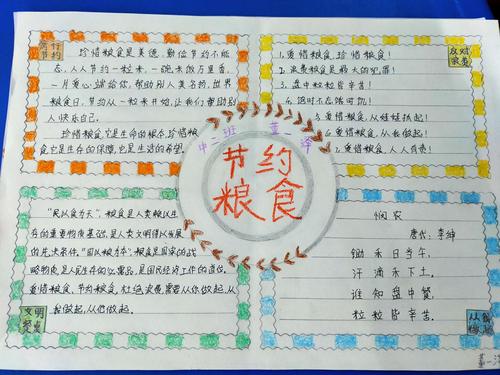 厉行
节约
珍惜粮食是美德,勤俭节约不能
忘,人人节约一粒米,一碗米饭万里香,
一片爱心端给你,帮助别人美名扬,世界
粮食日,节约从一粒米开始,让我们帮助别
人快乐自己。
珍惜粮食,它是生命的根本,珍惜粮
食,它是生存的保障,它是生活的希望。
反对
浪费
1、爱惜粮食,珍惜粮食!
2、浪费粮食是极大的犯罪!
3、盘中粒粒皆辛苦!
4、饱时不忘饿时饥!
5、爱惜粮食,从娃娃抓起!
6、爱惜粮食,从我做起!
7、爱惜粮食,人人有责!
中二班 董一泽
节约
粮食
"民以食为天",粮食是人类赖以生
存的重要物质基础,是人类文明得以发展
的先决条件。"国以粮为本",粮食是国家的战
略物质,是人民生存的必需品,是国民经济工作的重点。
爱惜粮食,节约粮食,杜绝浪费,需要从你做起,从
我做起,从他做起。
文明
悯农
唐代:李绅
锄禾日当午,
汗滴禾下土。
谁知盘中餐,
粒粒皆辛苦。
董一泽